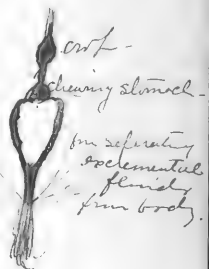 crop -
chewing stomach -
for separating
excremental
fluids
from body.